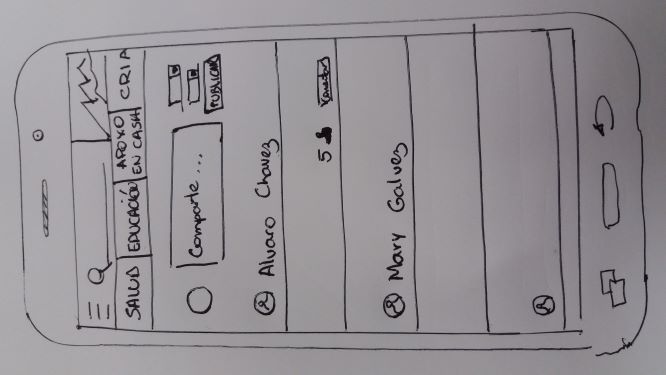 SALUD
EDUCACIÓN
APOYO
EN CASA
CRIA
Comparte ...
PUBLICAR
Alvaro Chavez
5
Mary Galvez